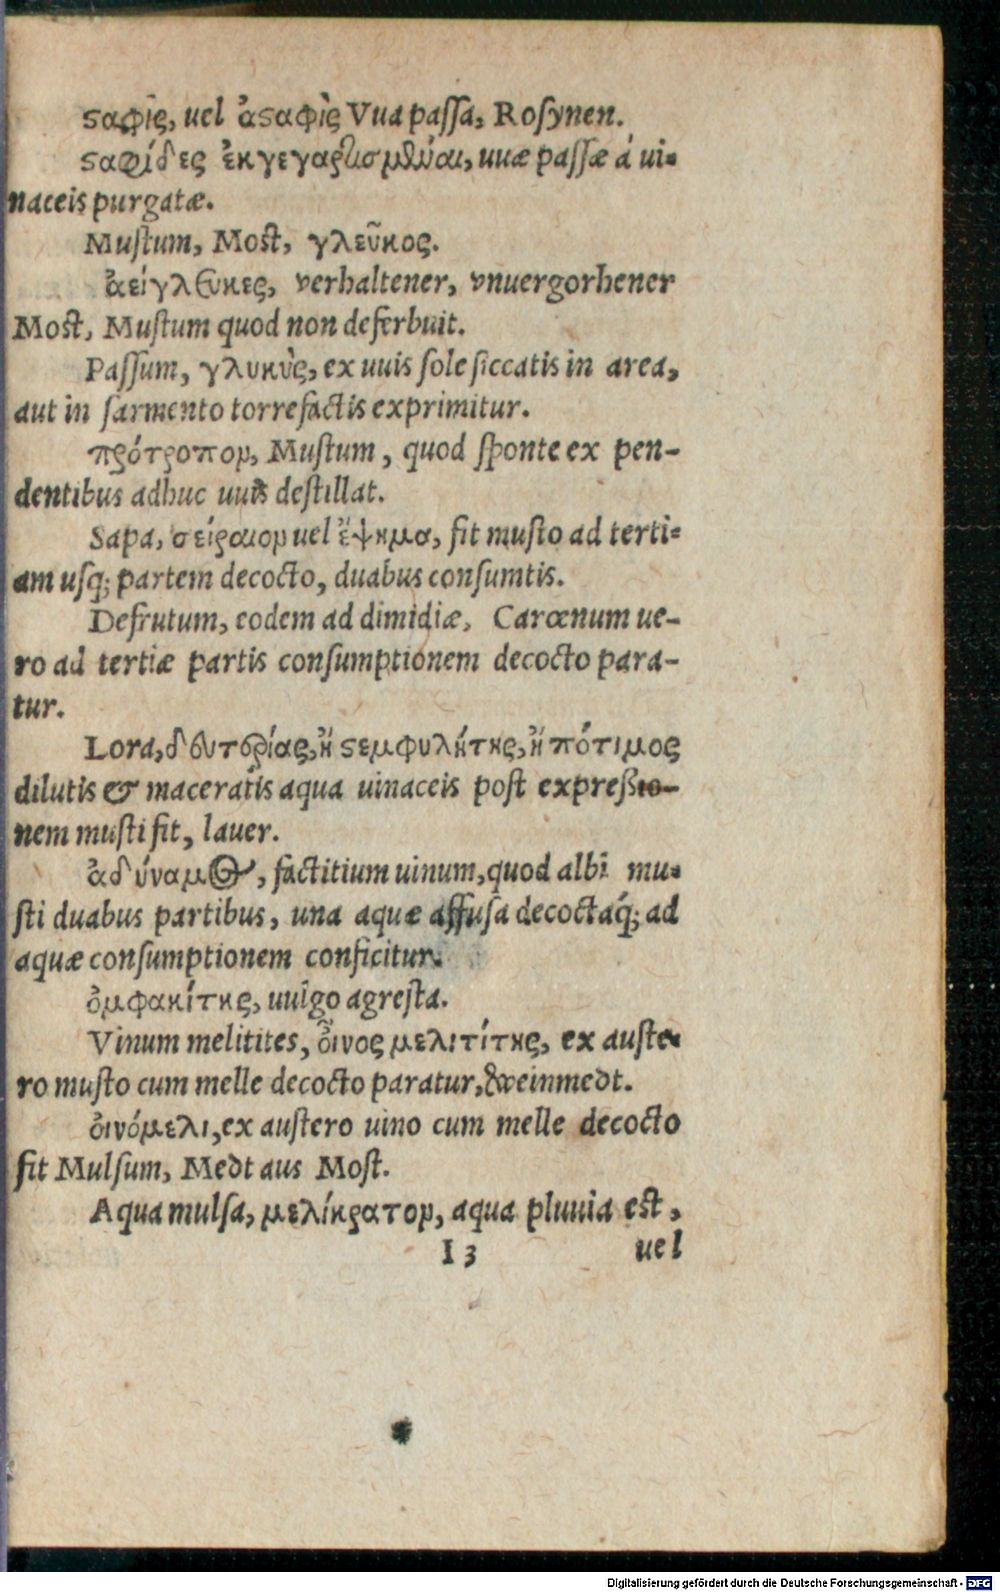 ϛαφὶς, uel ἀϛαφὶς Vua passa, Rosynen.
ϛαφίδες ἐκγεγαρτισμέναι, uuæ passæ á ui-
naceis purgatæ.
Mustum, Most, γλεῦκος.
ἀείγλευκες, verhaltener, vnuergorhener
Most, Mustum quod non deferbuit.
Passum, γλυκὺς, ex uuis sole siccatis in area,
aut in sarmento torrefactis exprimitur.
πρότροπον, Mustum, quod sponte ex pen-
dentibus adhuc uuis destillat.
Sapa, σείραιον uel ἕψημα, fit musto ad terti-
am usq; partem decocto, duabus consumtis.
Defrutum, eodem ad dimidiæ, Carœnum ue-
ro ad tertiæ partis consumptionem decocto para-
tur.
Lora, δευτερίας, ἢ ϛεμφυλίτης, ἢ πότιμος
dilutis & maceratis aqua uinaceis post expreßio-
nem musti fit, lauer.
ἀδύναμος, factitium uinum, quod albi mu-
sti duabus partibus, una aquæ affusa decoctaq́; ad
aquæ consumptionem conficitur.
ὀμφακίτης, uulgo agresta.
Vinum melitites, οἶνος μελιτίτης, ex auste-
ro musto cum melle decocto paratur, Weinmedt.
οἰνόμελι, ex austero uino cum melle decocto
fit Mulsum, Medt aus Most.
Aqua mulsa, μελίκρατον, aqua pluuia est,
I 3 uel
Digitalisierung gefördert durch die Deutsche Forschungsgemeinschaft - DFG